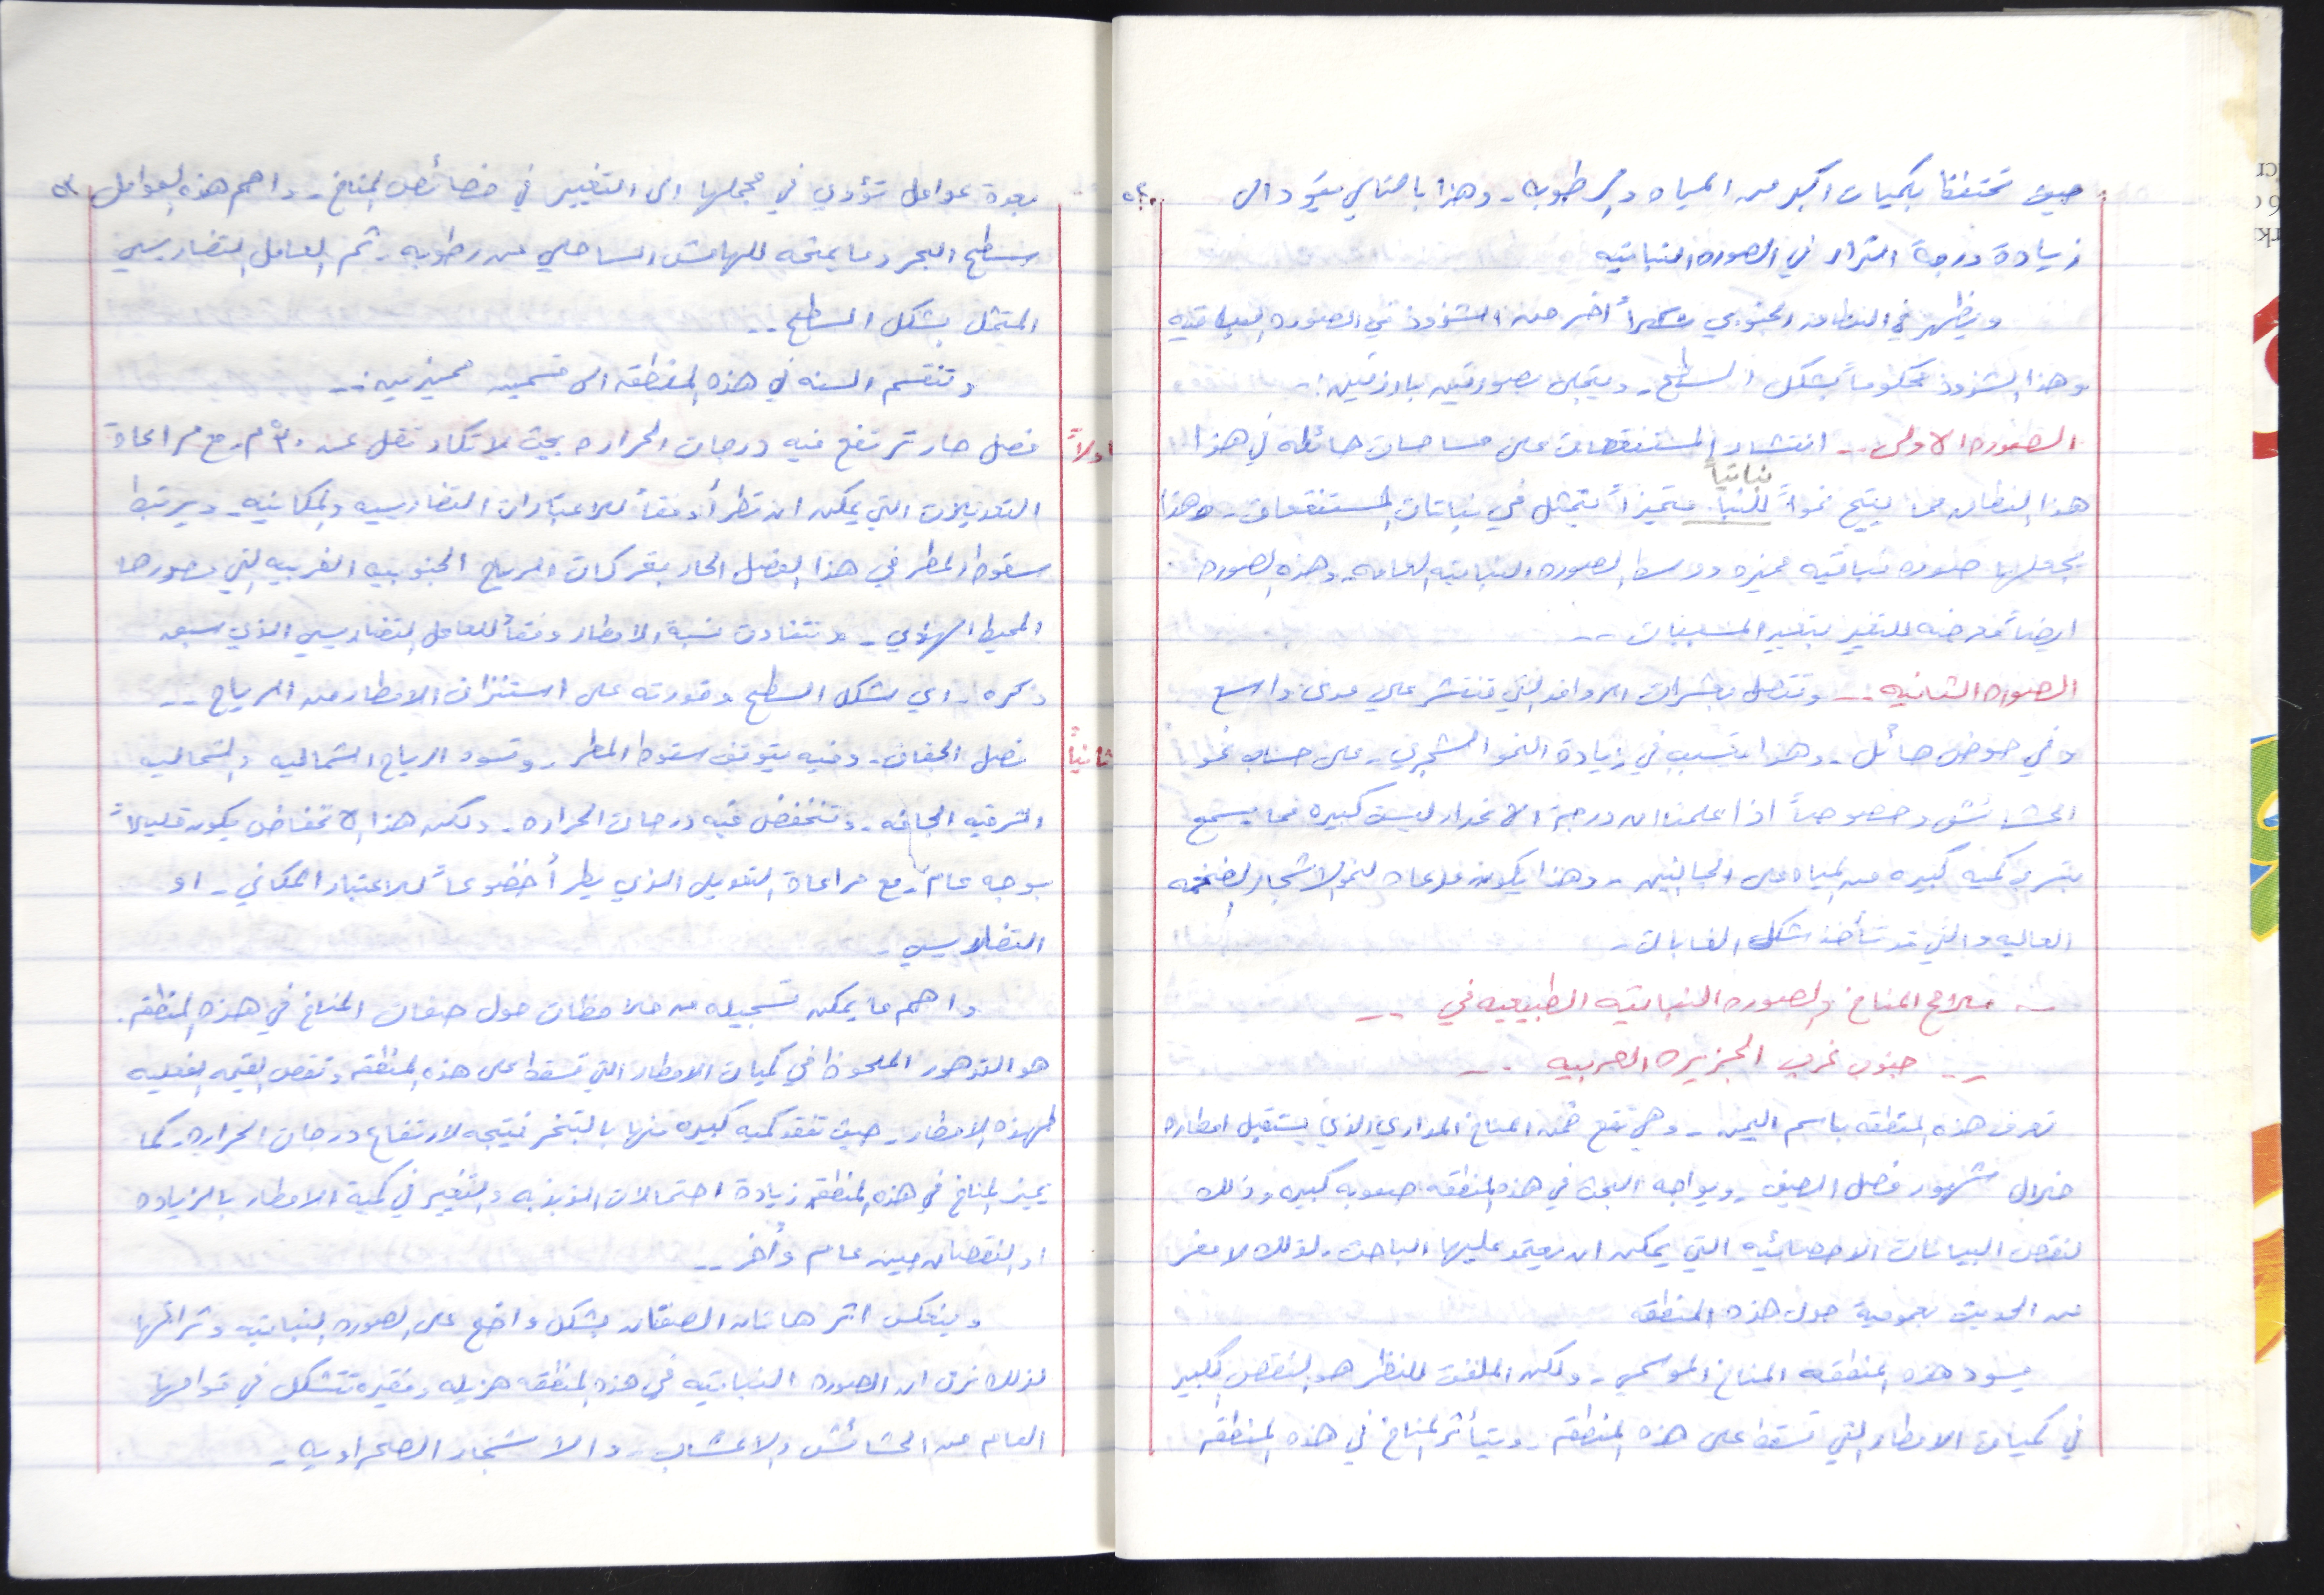 حيث تحتفظ بكميات اكبر من المياه والرطوبه - وهذا بالتالي يؤدي الى
زيادة درجة الثراء في الصوره النباتيه
ويظهر في النطاق الجنوبي مظهراً أخر من الشذوذ في الصوره النباتيه
وهذا الشذوذ محكوماً بشكل السطح - ويتجلى بصورتين بارزتين :-
الصوره الاولى -- انتشار المستنقعات على مساحات هائله في هذا
نباتياً
هذا النطاق مما يتيح نمواً للنبا متميزاً يتمثل في نباتات المستنقعات - وهذا
يجعلها صوره نباتيه مميزه وسط الصوره النباتيه العامه - وهذه الصوره
ايضاً معرضه للتغير بتغير المسببات --
الصوره الثانيه -- وتتصل بعشرات الروافد التي تنتشر على مدى واسع
وفي حوض هائل - وهذا يتسبب في زيادة النمو الشجري - على حساب نمو
الحشائش وخصوصاً اذا علمنا ان درجة الانحدار ليست كبيره مما يسمح
بتسرب كميه كبيره من المياه على الجانبين - وهذا يكون مدعاه لنمو الاشجار الضخمه
العاليه والتي قد تأخذ شكل الغابات -
ملامح المناخ والصوره النباتيه الطبيعيه في --
-- جنوب غرب الجزيره العربيه --
تعرف هذه المنطقه باسم اليمن - وهي تقع ضمن المناخ المداري الذي يستقبل امطاره
خلال شهور فصل الصيف - ويواجه البحث في هذه المنطقه صعوبه كبيره وذلك
لنقص البيانات الاحصائيه التي يمكن ان يعتمد عليها الباحث - لذلك لا مفر
من الحديث بعموميه حول هذه المنطقه
يسود هذه المنطقه المناخ الموسمي - ولكن الملفت للنظر هو النقص الكبير
في كميات الامطار التي تسقط على هذه المنطقه - ويتأثر المناخ في هذه المنطقه
بعدة عوامل تؤدي في مجملها الى التغيير في خصائص المناخ - واهم هذه العوامل
مسطح البحر وما يمنحه للهامش الساحلي من رطوبه - ثم العامل التضاريسي
المتمثل بشكل السطح --
وتنقسم السنه في هذه المنطقه الى قسمين مميزين :-
اولاً فصل حار ترتفع فيه درجات الحراره بحيث لا تكاد تقل عن ٣٠°م مع مراعاة
التعديلات التي يمكن ان تطرأ وفقاً للاعتبارات التضاريسيه والمكانيه - ويرتبط
سقوط المطر في هذا الفصل الحار بتحركات الرياح الجنوبيه الغربيه التي مصدرها
المحيط الهندي - وتتفاوت نسبة الامطار وفقاً للعامل التضاريسي الذي سبق
ذكره - اي شكل السطح وقدرته على استنزاف الامطار من الرياح --
ثانياً فصل الجفاف - وفيه يتوقف سقوط المطر - وتسود الرياح الشماليه والشماليه
الشرقيه الجافه - وتنخفض فيه درجات الحراره - ولكن هذا الانخفاض يكون قليلاً
بوجه عام - مع مراعاة التعديل الذي يطرأ خضوعاً للاعتبار المكاني - او
التضاريسي -
واهم ما يمكن تسجيله من ملاحظات حول صفات المناخ في هذه المنطقه .
هو التدهور الملحوظ في كميات الامطار التي تسقط على هذه المنطقه ونقص القيمه الفعليه
لهذه الامطار - حيث تفقد كميه كبيره منها بالتبخر نتيجه لارتفاع درجات الحراره - كما
يميز المناخ في هذه المنطقه زيادة احتمالات الذبذبه والتغيير في كمية الامطار بالزياده
او النقصان بين عام وأخر --
وينعكس اثر هاتان الصفتان بشكل واضح على الصوره النباتيه وثرائها
لذلك نرى ان الصوره النباتيه في هذه المنطقه هزيله وفقيره تتشكل في قوامها
العام من الحشائش والاعشاب - والاشجار الصحراويه -